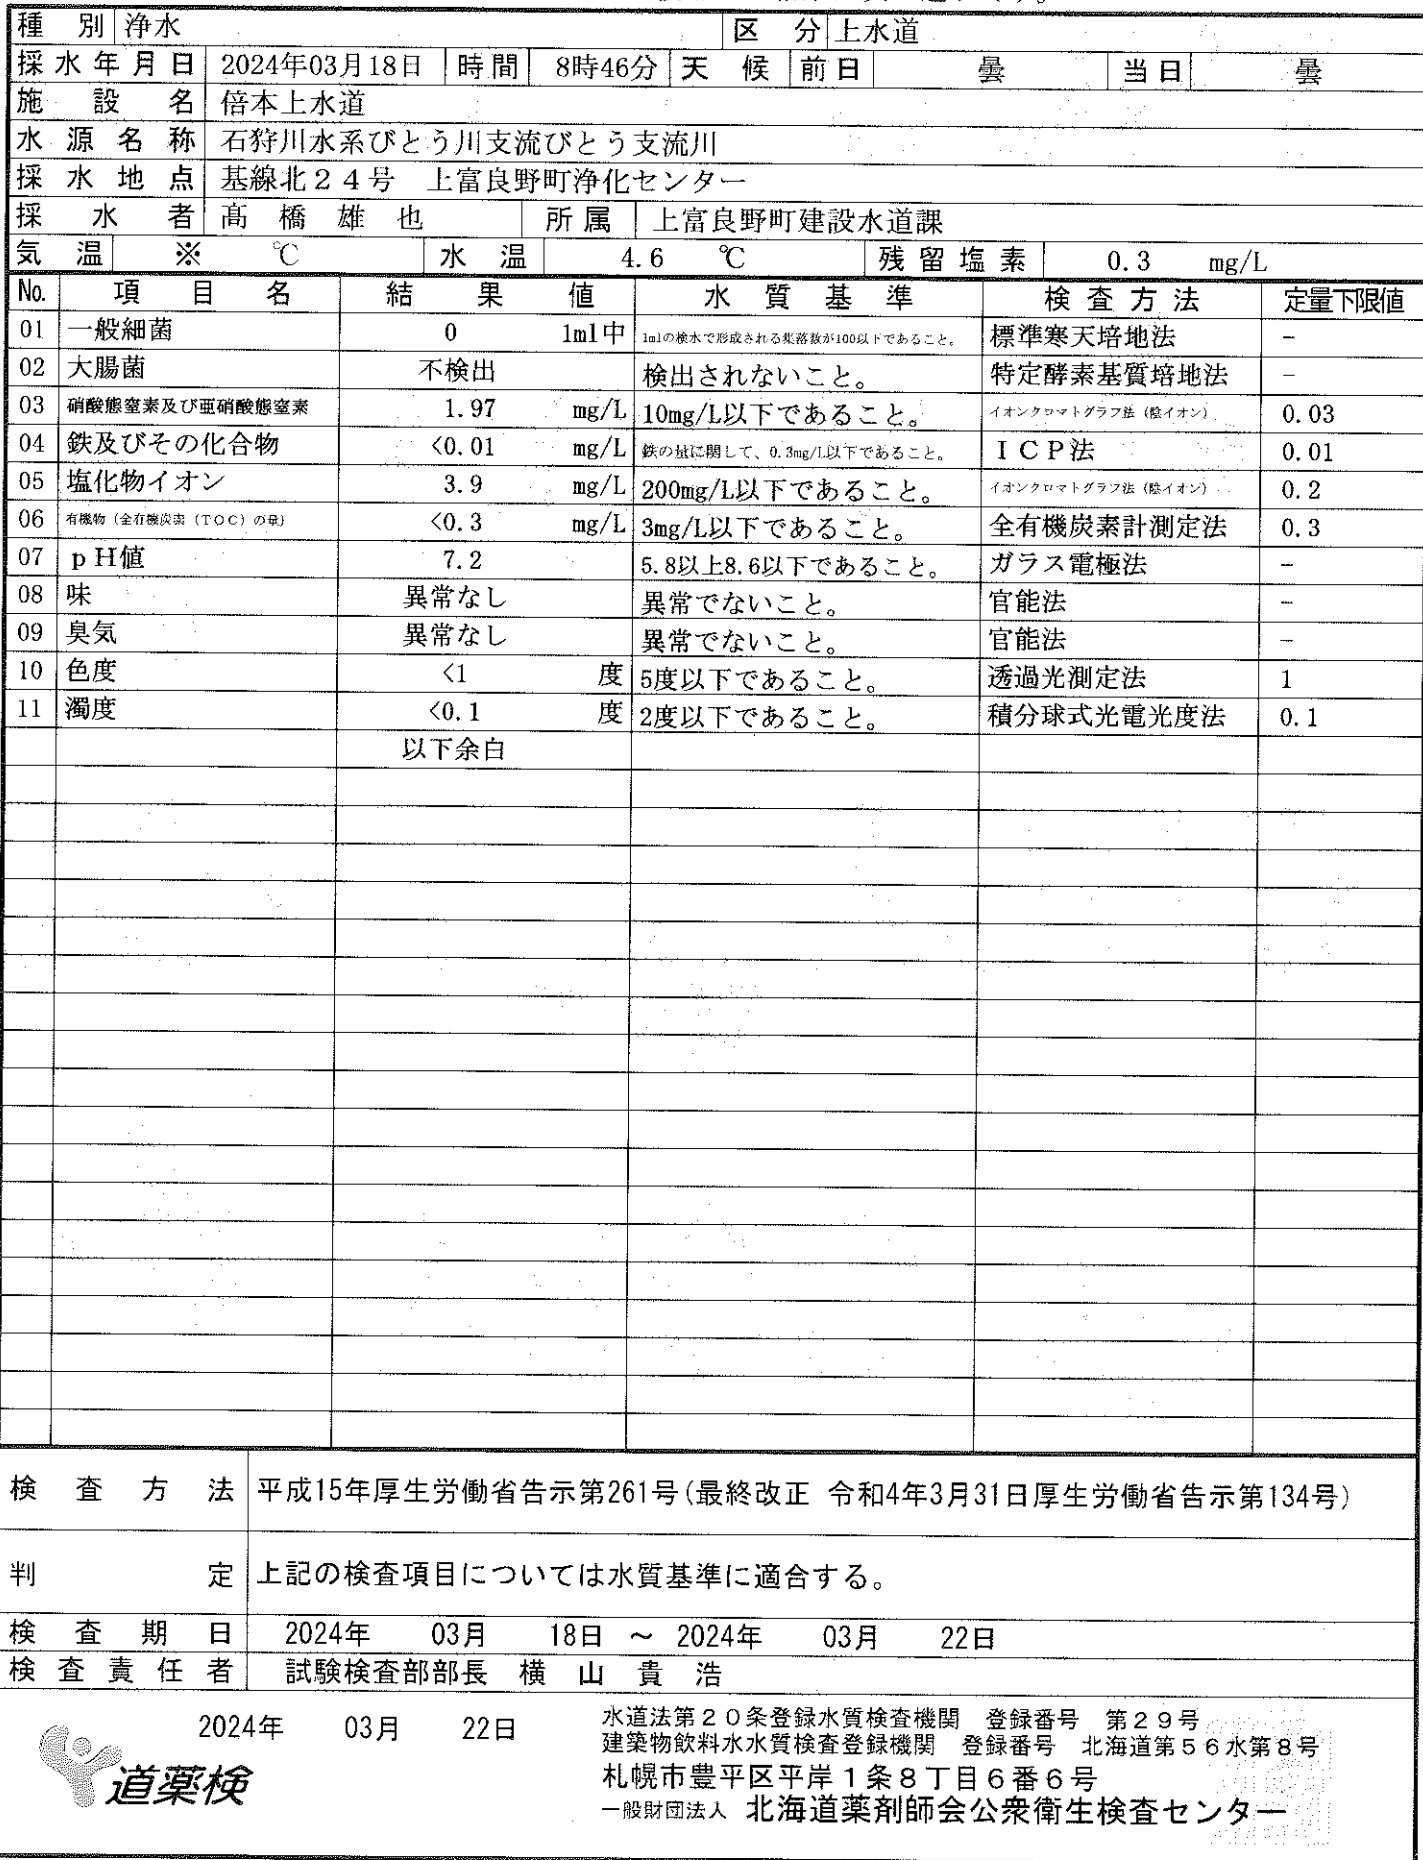 種別 浄水 区分 上水道
採水年月日 2024年03月18日 時間 8時46分 天候 前日 曇 当日 曇
施設名 倍本上水道
水源名称 石狩川水系びとう川支流びとう支流川
採水地点 基線北24号 上富良野町浄化センター
採水者 髙橋雄也 所属 上富良野町建設水道課
気温 ※ ℃ 水温 4.6 ℃ 残留塩素 0.3 mg/L
No. 項目名 結果値 水質基準 検査方法 定量下限値
01 一般細菌 0 1ml中 1mlの検水で形成される集落数が100以下であること。 標準寒天培地法 −
02 大腸菌 不検出 検出されないこと。 特定酵素基質培地法 −
03 硝酸態窒素及び亜硝酸態窒素 1.97 mg/L 10mg/L以下であること。 イオンクロマトグラフ法（陰イオン） 0.03
04 鉄及びその化合物 <0.01 mg/L 鉄の量に関して、0.3mg/L以下であること。 ICP法 0.01
05 塩化物イオン 3.9 mg/L 200mg/L以下であること。 イオンクロマトグラフ法（陰イオン） 0.2
06 有機物（全有機炭素（TOC）の量） <0.3 mg/L 3mg/L以下であること。 全有機炭素計測定法 0.3
07 pH値 7.2 5.8以上8.6以下であること。 ガラス電極法 −
08 味 異常なし 異常でないこと。 官能法 −
09 臭気 異常なし 異常でないこと。 官能法 −
10 色度 <1 度 5度以下であること。 透過光測定法 1
11 濁度 <0.1 度 2度以下であること。 積分球式光電光度法 0.1
以下余白
検査方法 平成15年厚生労働省告示第261号(最終改正 令和4年3月31日厚生労働省告示第134号)
判定 上記の検査項目については水質基準に適合する。
検査期日 2024年 03月 18日 ～ 2024年 03月 22日
検査責任者 試験検査部部長 横山貴浩
2024年 03月 22日
水道法第20条登録水質検査機関 登録番号 第29号
建築物飲料水水質検査登録機関 登録番号 北海道第56水第8号
札幌市豊平区平岸1条8丁目6番6号
一般財団法人 北海道薬剤師会公衆衛生検査センター
道薬検